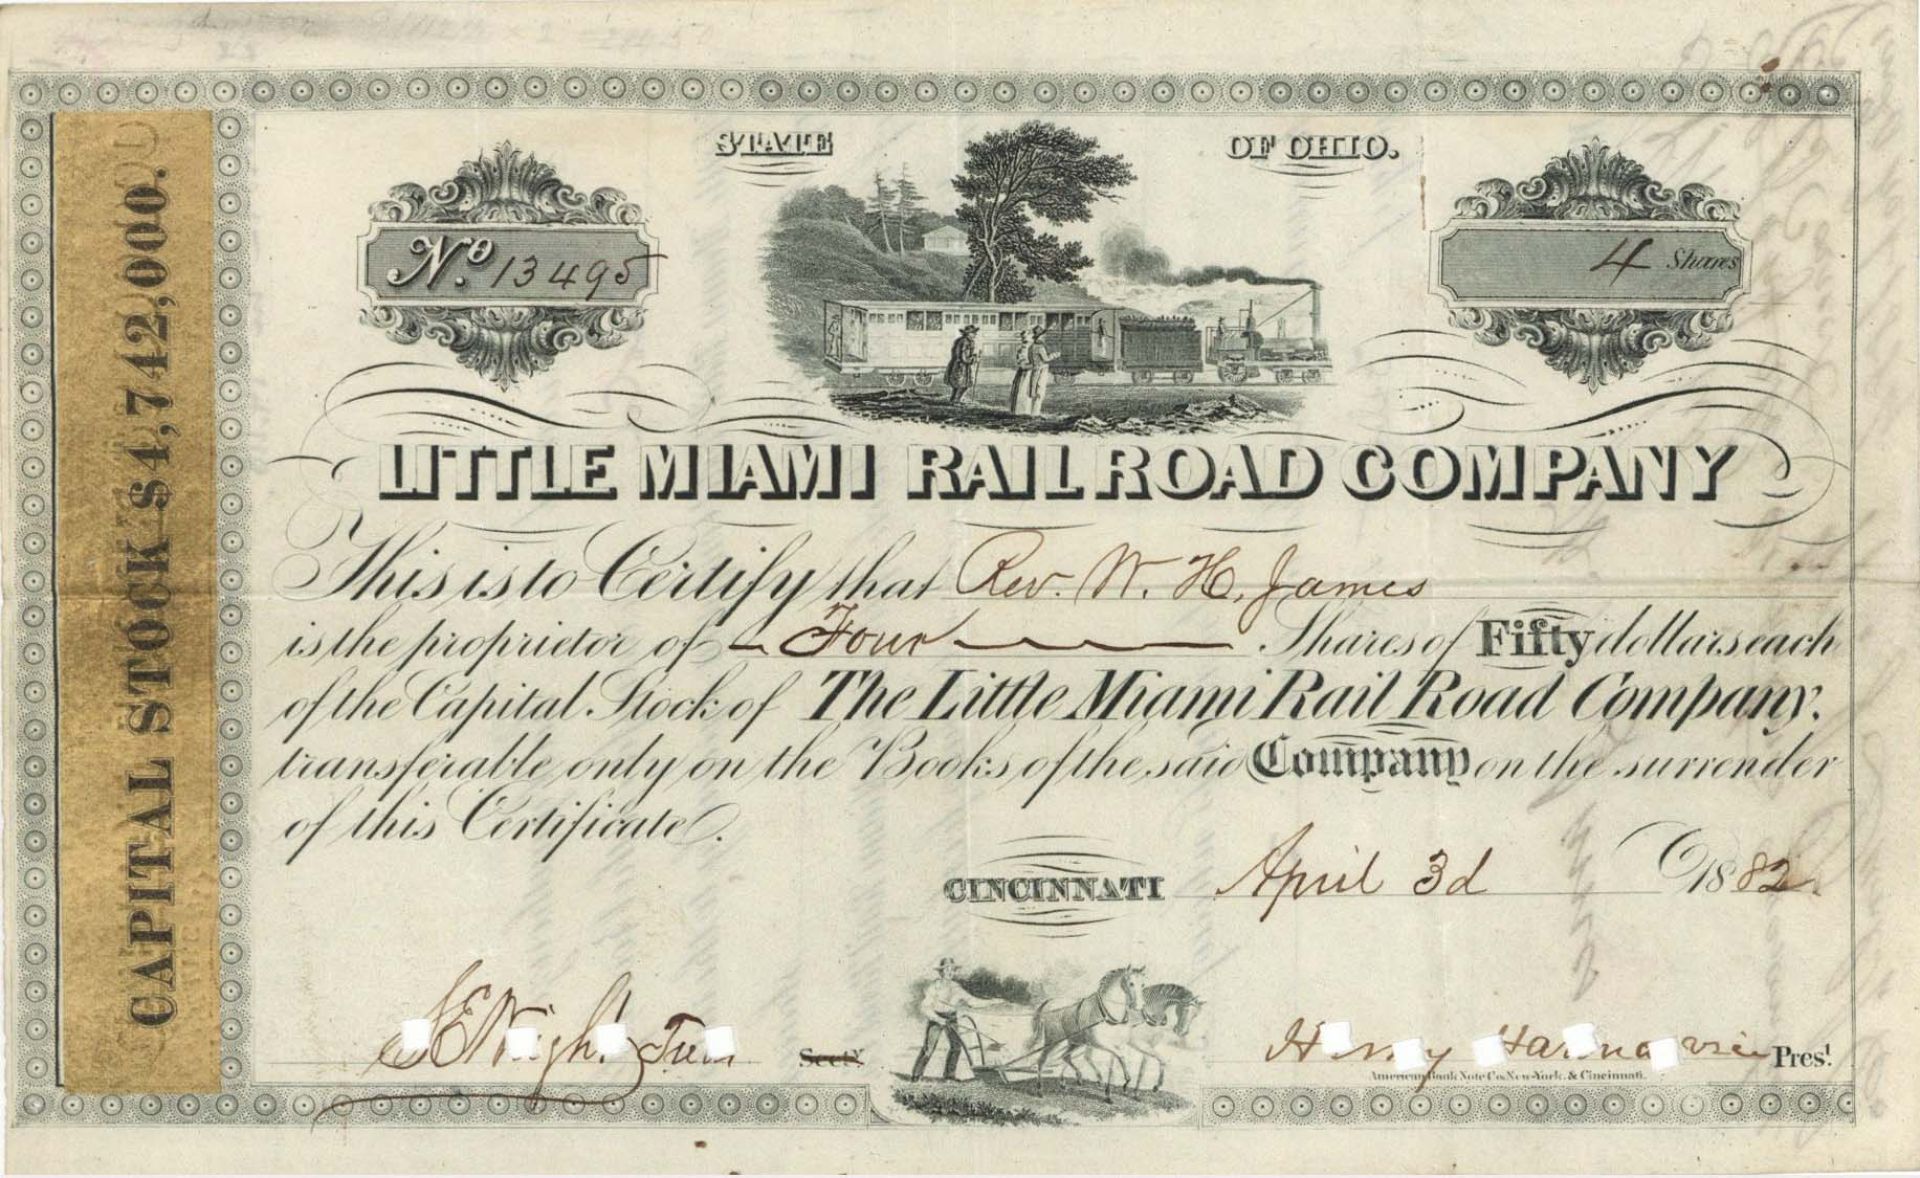 STATE OF OHIO.
No. 13495
4 Shares
CAPITAL STOCK $4,742,000.
LITTLE MIAMI RAIL ROAD COMPANY
This is to Certify that Rev. W. H. James
is the proprietor of Four Shares of Fifty dollars each
of the Capital Stock of The Little Miami Rail Road Company,
transferable only on the Books of the said Company on the surrender
of this Certificate.
CINCINNATI April 3d 1882
S E Wright Treas Sect'y.
Henry Pres't.
American Bank Note Co. New-York. & Cincinnati.